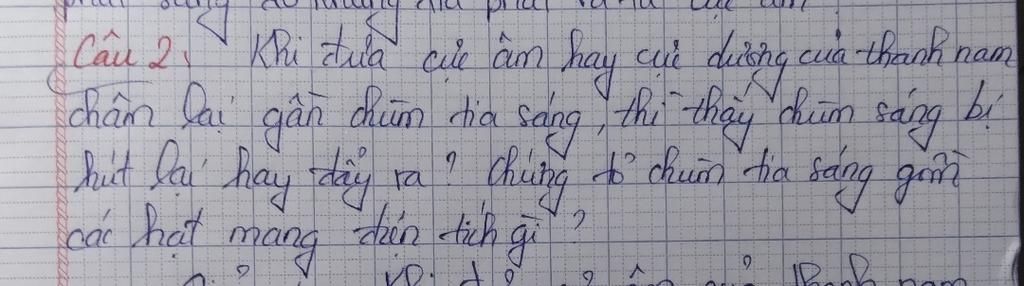 Câu 2, Khi đưa cực âm hay cực dương của thanh nam
châm lại gần chùm tia sáng, thì thấy chùm sáng bị
hút lại hay đẩy ra? Chứng tỏ chùm tia sáng gồm
các hạt mang điện tích gì?